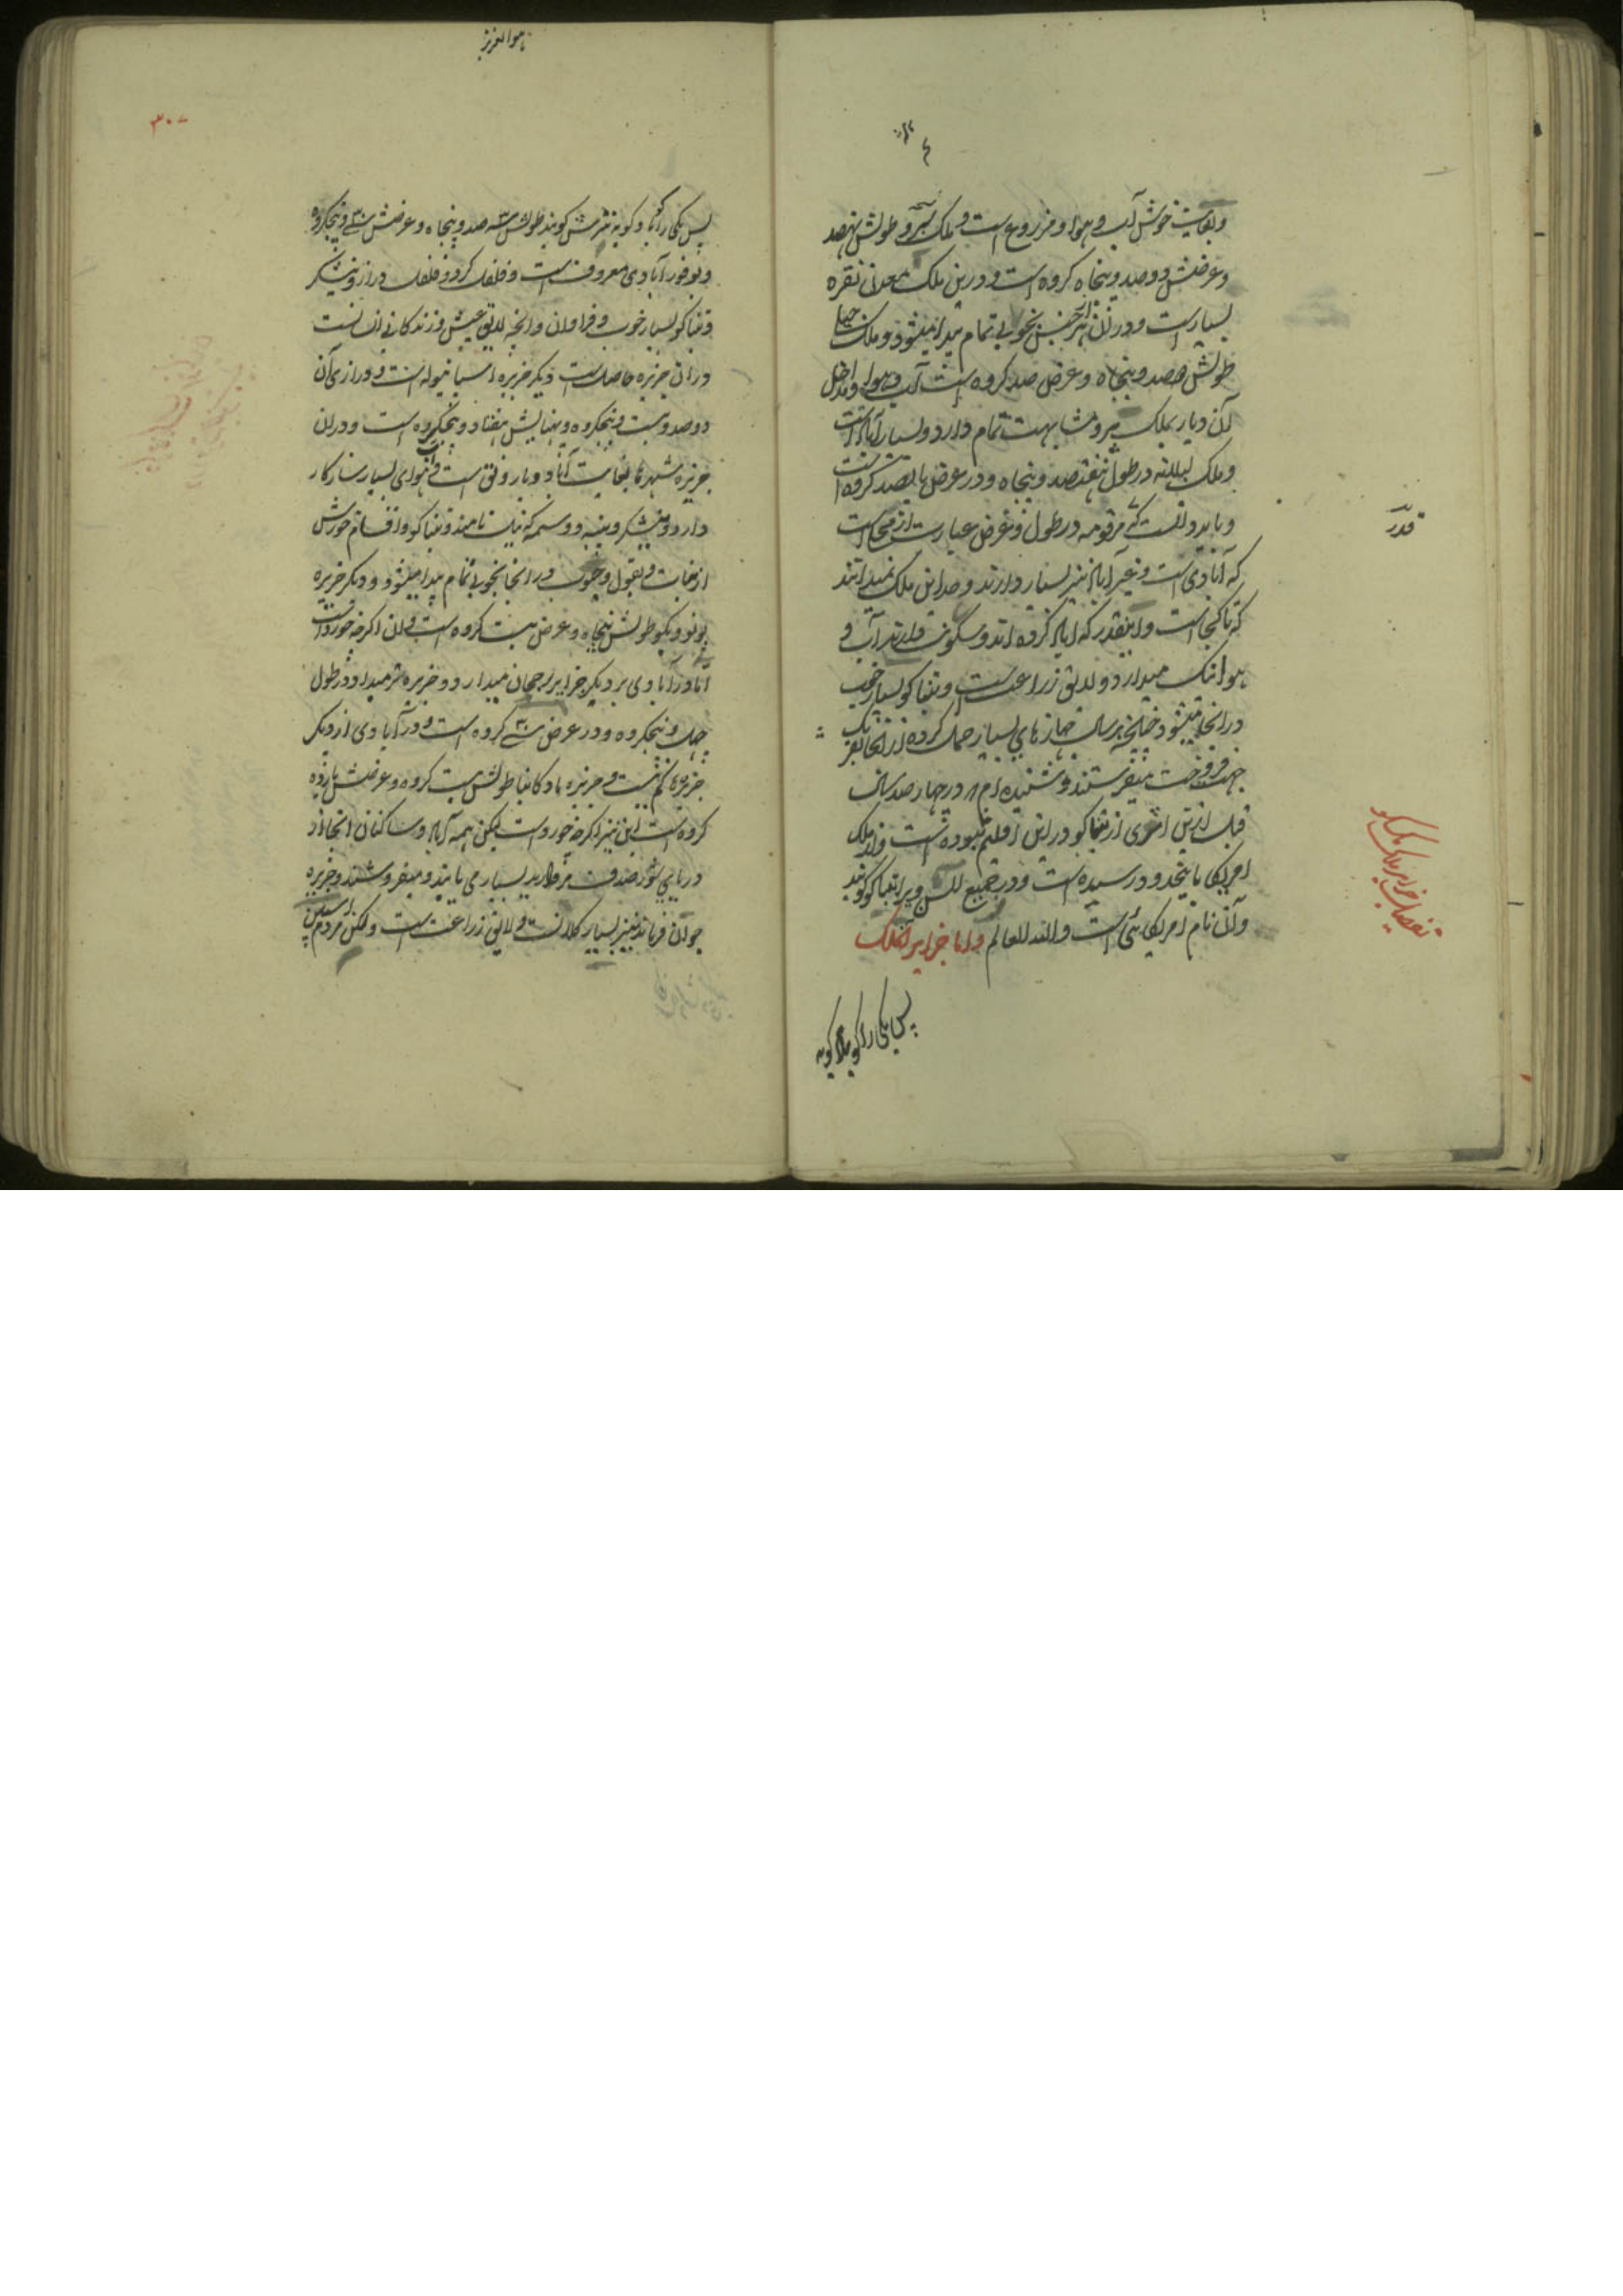 وبغایت خوش آب و هوا و مزروع است و ملک پیرو طولش نهصد
وعرضش دوصد و پنجاه کروه است و درین ملک معدن نقره
بسیار است و در آن هر جنس بخوبی تمام پیدا میشود و ملک
طولش هصد و پنجاه و عرض صد کروه است آب و هوا و مداخل
آن دیار بملک پیرو مشابهت تمام دارد و بسیار آباد است
و ملک در طول هفتصد و پنجاه و در عرض پانصد کروه است
و باید دانست که مرقومه در طول و عرض عبارت از محلی است
که آبادی است و غیر آباد نیز بسیار دارند و حد این ملک نمیدانند
که تا کجا است و اینقدر که آباد کرده اند و سکونت دارند آب و
هوا نیک میدارد و لایق زراعت است و تنباکو بسیار خوب
در آنجا میشود چنانچه هر سال جهازهای بسیار حمل کرده از آنجا
جهت فروخت میفرستند و شنیده ام که در چهار صد سال
قبل ازین اثری از تنباکو درین اقلیم نبوده است و از ملک
امریکا باینحدود رسیده است و در جمیع السن ویرا تنباکو گویند
و آن نام امریکائی است والله العالم و اما جزایر آنملک
پس یکی را کوبا و کوبه
قدر
تفصیل جزایر ملک مکسکو
هوالعزیز
۳۰۷
پس یکی را کوبا و کوبه نیزش گویند طولش سه صد و پنجاه و عرضش سی و پنجکروه
و بوفور آبادی معروفست و فلفل گرد و فلفل دراز و نیشکر
و تنباکو بسیار خوب و فراوان و آنچه لایق عیش و زندگانی انسانست
در آن جزیره حاصل است دیگر جزیره اسپانیوله است و درازی آن
دوصد و بیست و پنجکروه و پهنایش هفتاد و پنجکروه است و در آن
جزیره شهرها بغایت آباد و با رونق است و آب و هوای بسیار سازکار
دارد و نیشکر و پنبه و وسمه که نیل نامند و تنباکو و اقسام خورش
از نبات و بقول و حبوب در آنجا بخوبی تمام پیدا میشود و دیگر جزیره
پورتوریکو طولش پنجاه و عرض بیست کروه است و آن اگرچه خورد است
اما در آبادی بر دیگر جزایر رجحان میدارد و جزیره در طول
چهل و پنجکروه و در عرض سی کروه است و در آبادی از دیگر
جزیره کم نیست و جزیره طولش بیست کروه و عرضش پانزده
کروه است این نیز اگرچه خورد است لیکن همه آباد و ساکنان آنجا از
دریای شور صدف مروارید بسیار می یابند و میفروشند و جزیره
جوان فرناندیز بسیار کلانست و لایق زراعت است ولکن مردم